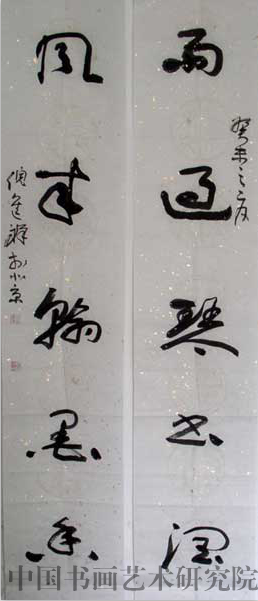 雨過琴書潤
癸未之夏
風來翰墨香
於北京
中国书画艺术研究院